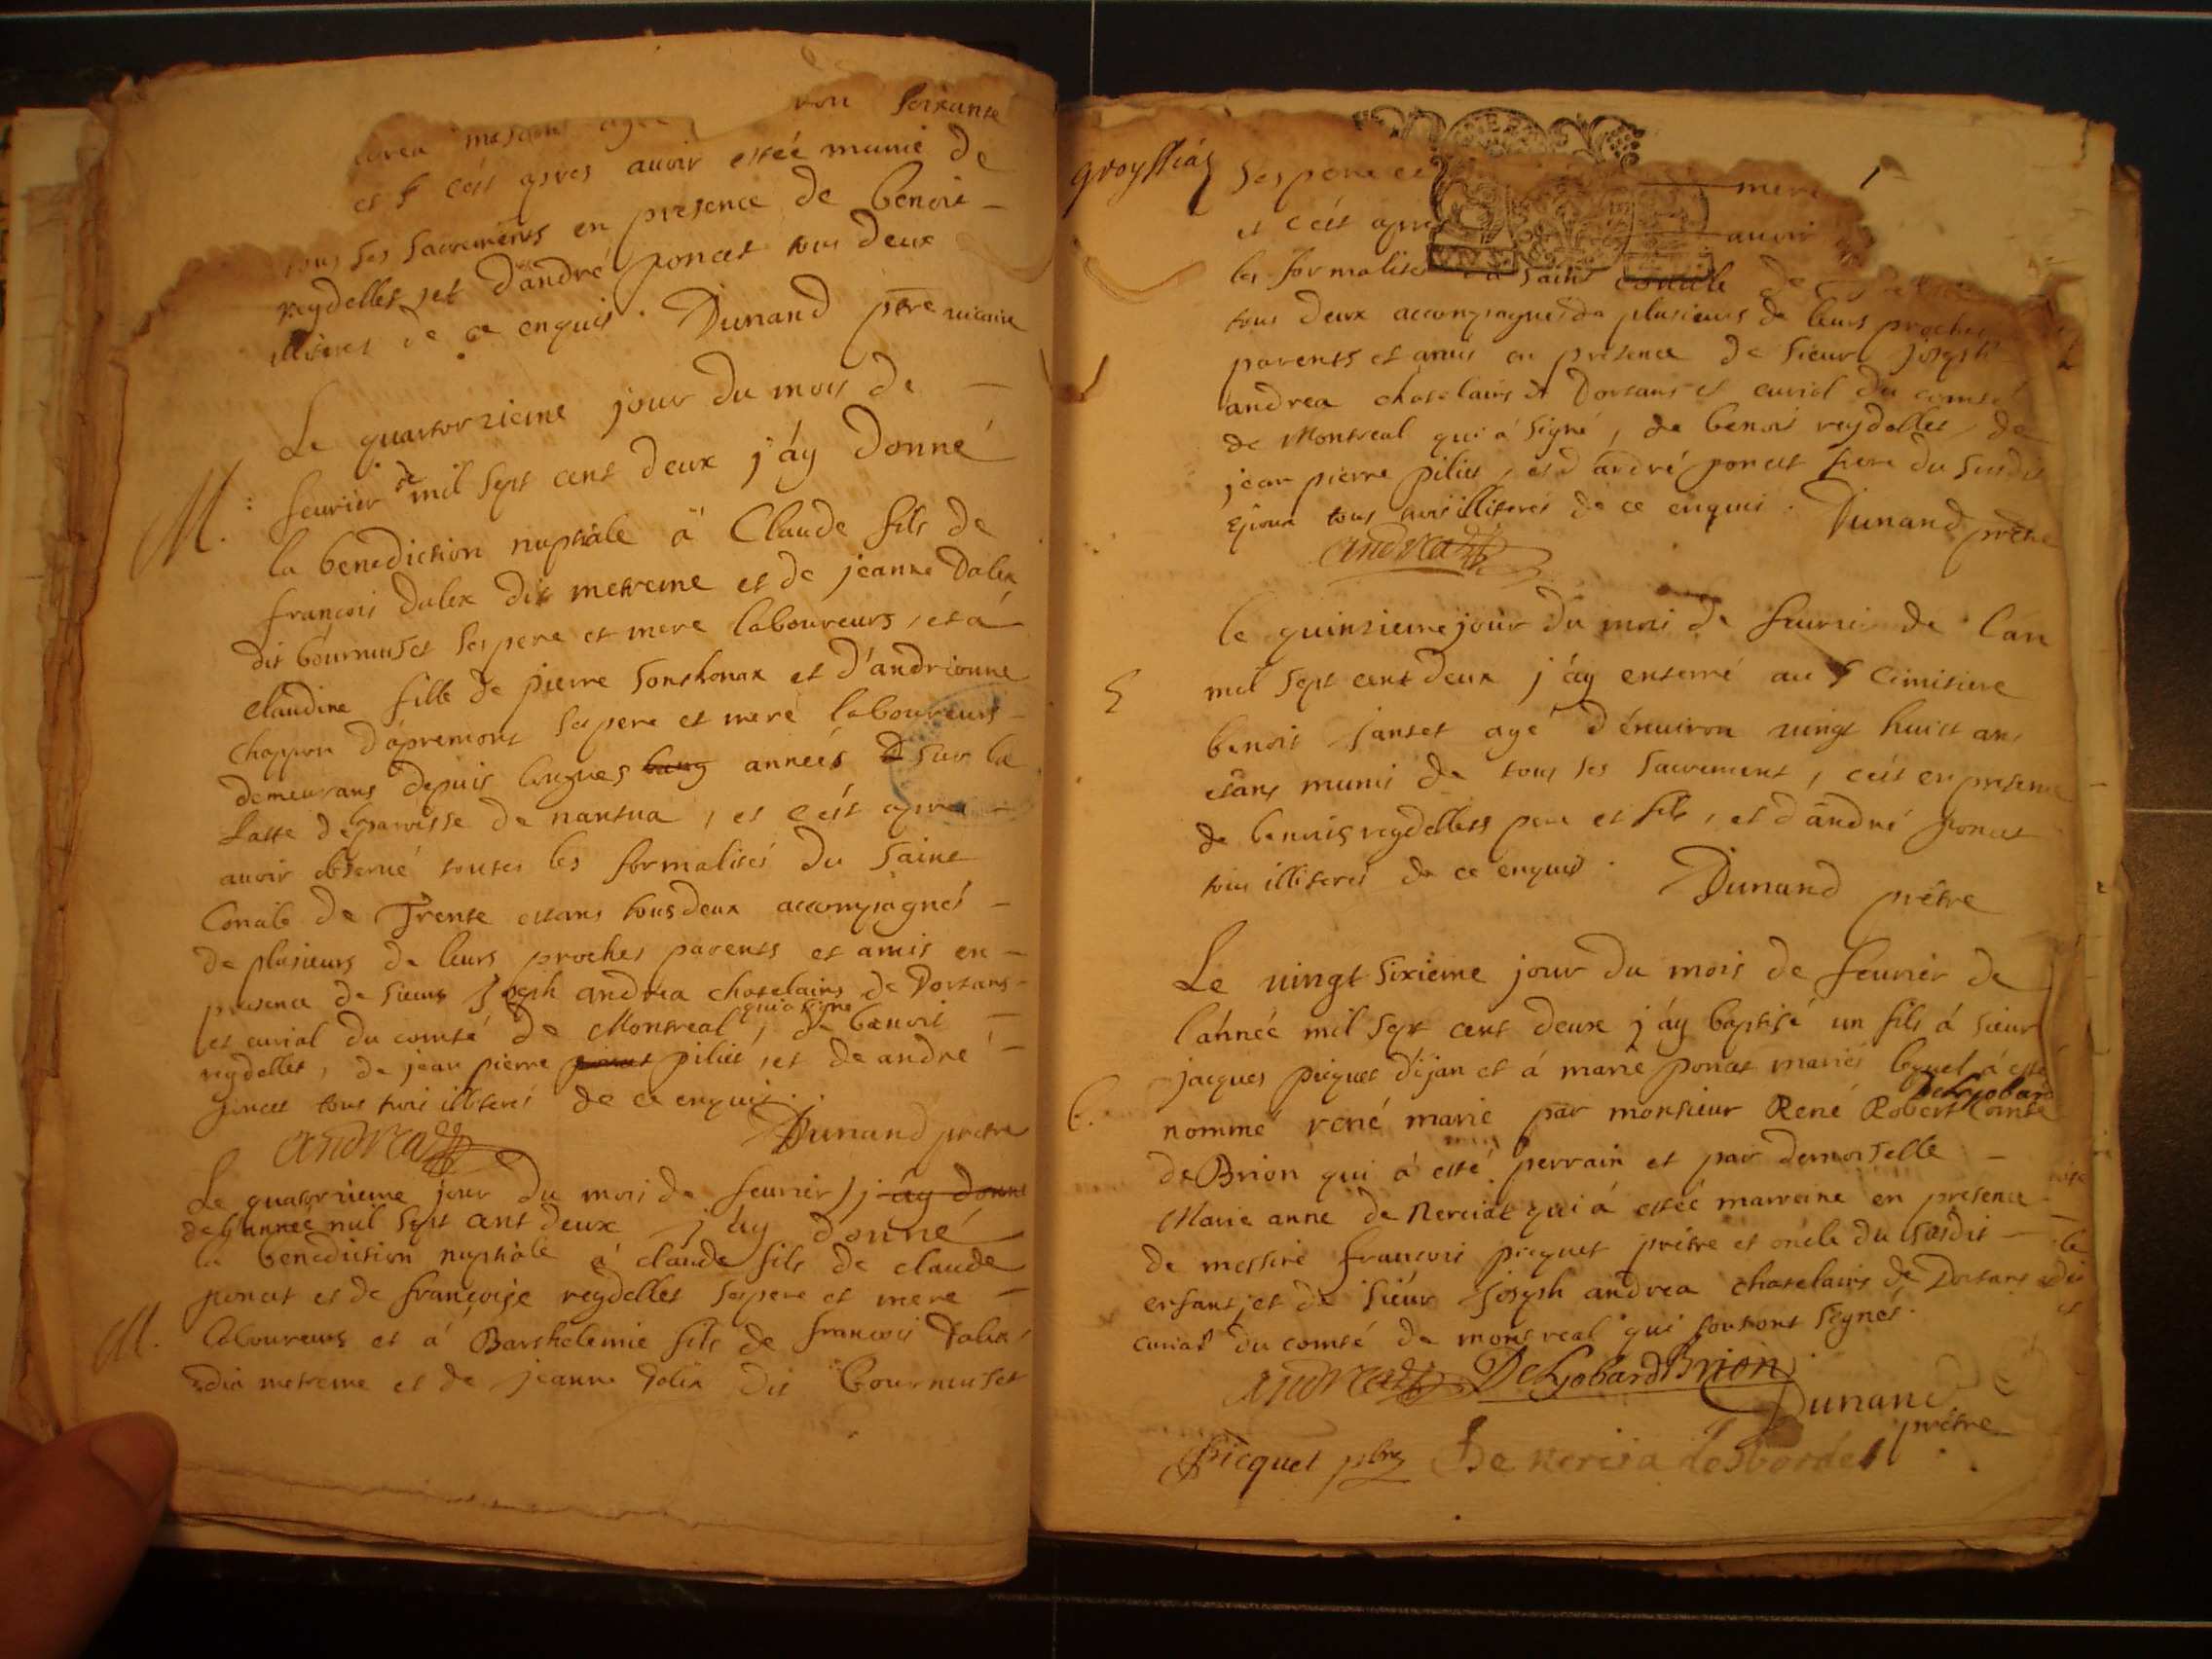 ron soixante
et c'est apres avoir estéé munie de
tous ses sacrements en presence de benoit
reydellet, et d'andré poncet tous deux
illiteres de ce enquis. Dunand ptre vicaire
Le quartorzieme jour du mois de
M. fevrier de mil sept cent deux j'áy donné
la benediction nuptiale á Claude fils de
françois dalex dit metreme et de jeanne dalex
dit bourmuset ses pere et mere laboureurs, et á
claudine fille de pierre sonthonax et d'andrienne
chappon d'apremont ses pere et mere laboureurs
demeurans depuis longues années sur la
parroisse de nantua, et c'est apres
avoir observé toutes les formalités du saint
Concile de Trente estans tous deux accompagnés
de plusieurs de leurs proches parents et amis en
presence de sieur Joseph andrea chatelains de Dortans
et curial du comté de Montreal qui a signé, de benoit
reydellet, de jean pierre piliét, et de andre
poncet tous trois illiterés de ce enquis.
andrea Dunand pretre
Le quatorzieme jour du mois de fevrier j'áy donné
de l'année mil sept cent deux j'áy donné
la benediction nuptiale á claude fils de claude
poncet et de françoise reydellet ses pere et mere
M. laboureurs et á Barthelemie fille de francois dalex
dit metreme et de jeanne dalex dit bourmuset
groyssiaz ses pere et mere 1
et c'est apres avoir
les formalites saint concile de
tous deux accompagnés de plusieurs de leurs proches
parents et amis en presence de sieur Joseph
andrea chatelains de Dortans et curial du comté
de Montreal qui á signé, de benoit reydellet, de
jean pierre piliét, et d'andré poncet frere du susdit
epoux tous trois illiterés de ce enquis. Dunand prêtre
andrea
le quinzieme jour du mois de fevrier de l'an
S mil sept cent deux j'áy enterré au cimitiere
benoit jantet agé d'énviron vingt huict ans
estans munis de tous ses sacrement, c'est en presence
de benoit reydellets pere et fils, et d'andré poncet
tous illiterés de ce enquis. Dunand prêtre
Le vingt sixieme jour du mois de fevrier de
l'ahnée mil sept cent deux j'áy baptisé un fils á sieur
jacques picquet dijan et á marie poncet mariés lequel á esté
b. nommé rené marie par monsieur René Robert DeLyobard Comte
de Brion qui á esté perrain et par demoiselle
Marie anne de Nerciat qui á estéé marreine en presence
de messire francois picquet prêtre et oncle du susdit
enfant, et de sieur Joseph andrea chatelains de Dortans
curial du comté de montreal qui sousont signés.
andrea DeLyobard Brion Dunand prêtre
Picquet pbre